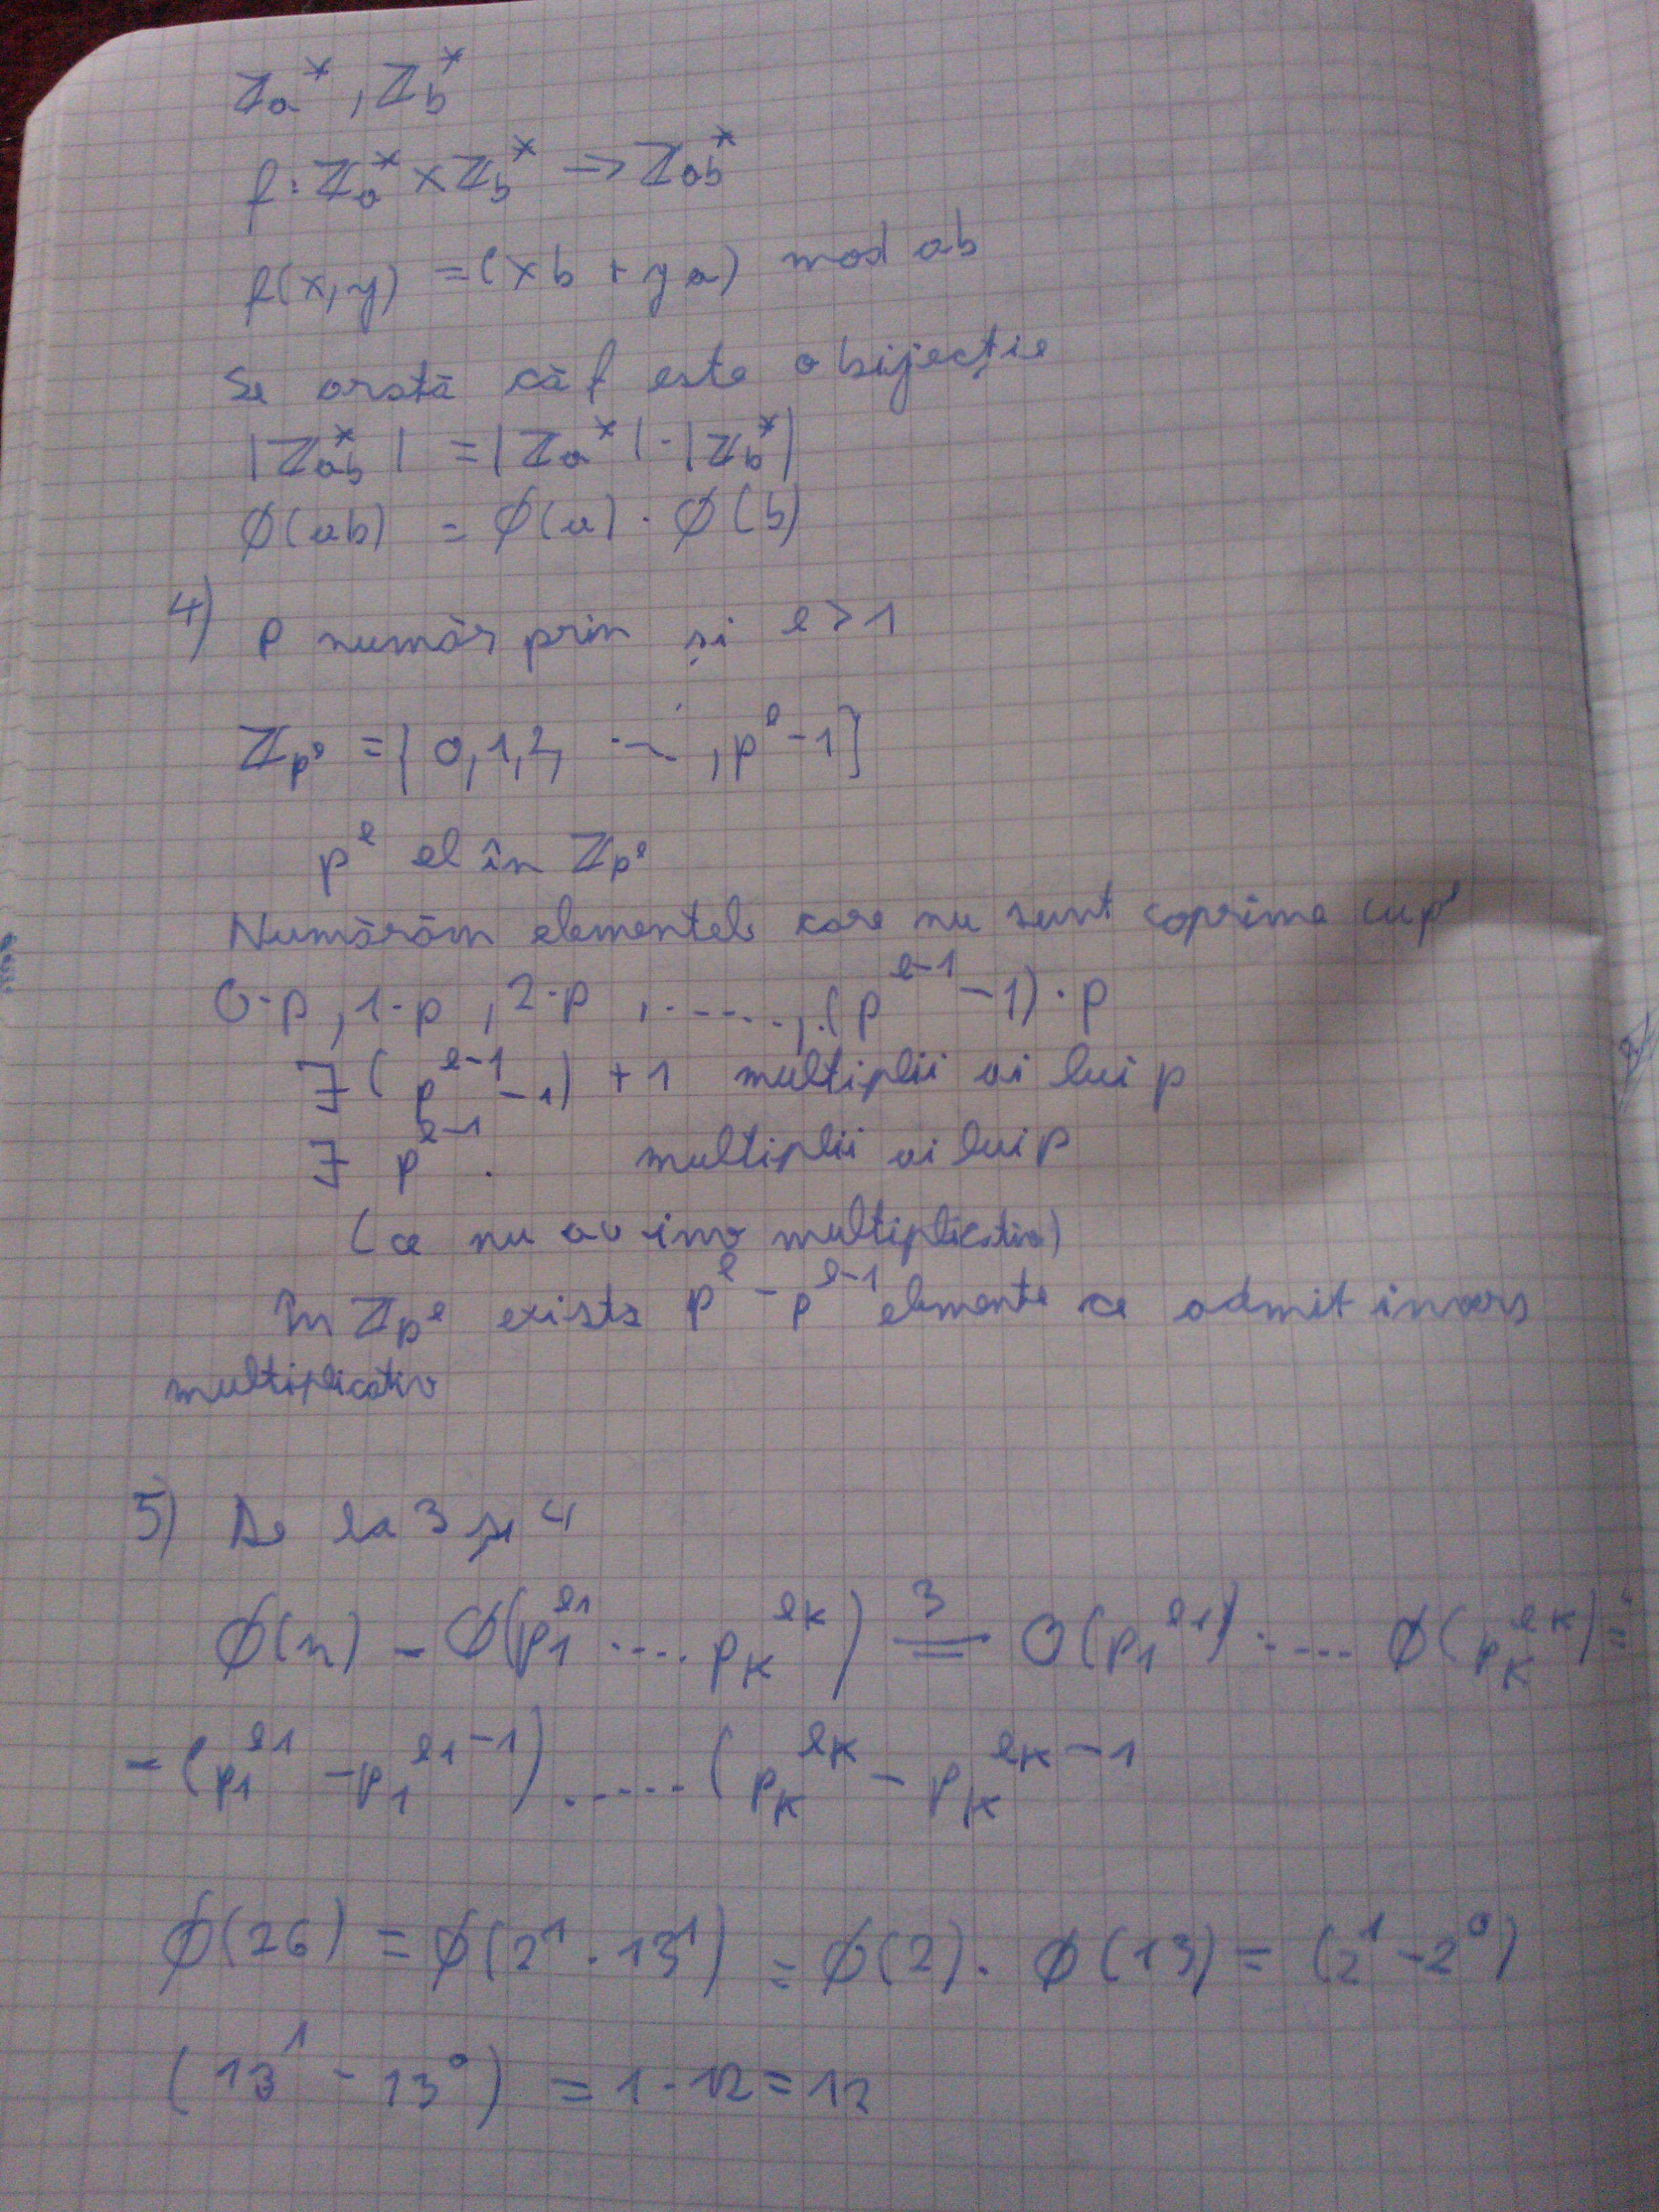 Za*, Zb*
f: Za* × Zb* → Zab*
f(x,y) = (xb + ya) mod ab
Se arată că f este o bijecție
|Zab*| = |Za*|·|Zb*|
ϕ(ab) = ϕ(a)·ϕ(b)
4) p număr prim și e > 1
Zp^e = {0,1,2, ..., p^e-1}
p^e el în Zp^e
Numărăm elementele care nu sunt coprime cu p^e
0·p, 1·p, 2·p, ....., (p^(e-1) - 1)·p
∃ (p^(e-1) - 1) + 1 multiplii ai lui p
∃ p^(e-1) multiplii ai lui p
(ce nu au inv multiplicativ)
În Zp^e există p^e - p^(e-1) elemente ce admit invers
multiplicativ
5) De la 3 și 4
ϕ(n) = ϕ(p1^e1 .... pk^ek) =3= ϕ(p1^e1) ..... ϕ(pk^ek) =
= (p1^e1 - p1^(e1-1)) ..... (pk^ek - pk^(ek-1)
ϕ(26) = ϕ(2^1 · 13^1) = ϕ(2) · ϕ(13) = (2^1 - 2^0)
(13^1 - 13^0) = 1·12 = 12